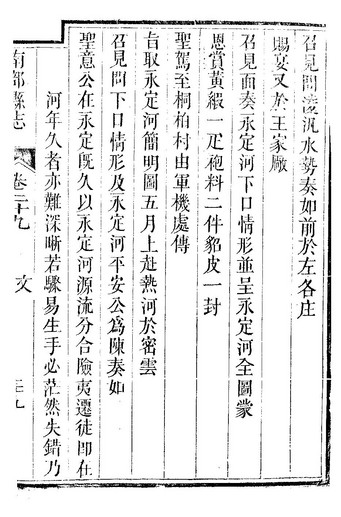 召見問淩汛水勢奏如前於左各庄
賜宴又於王家廠
召見面奏永定河下口情形並呈永定河全圖蒙
恩賞黃緞一疋袍料二件貂皮一封
聖駕至桐柏村由軍機處傳
旨取永定河簡明圖五月上赴熱河於密雲
召見問下口情形及永定河平安公爲陳奏如
聖意公在永定既久以永定河源流分合險夷遷徙即在
河年久者亦難深晰若驟易生手必茫然失錯乃
南部縣志
卷二十九
文